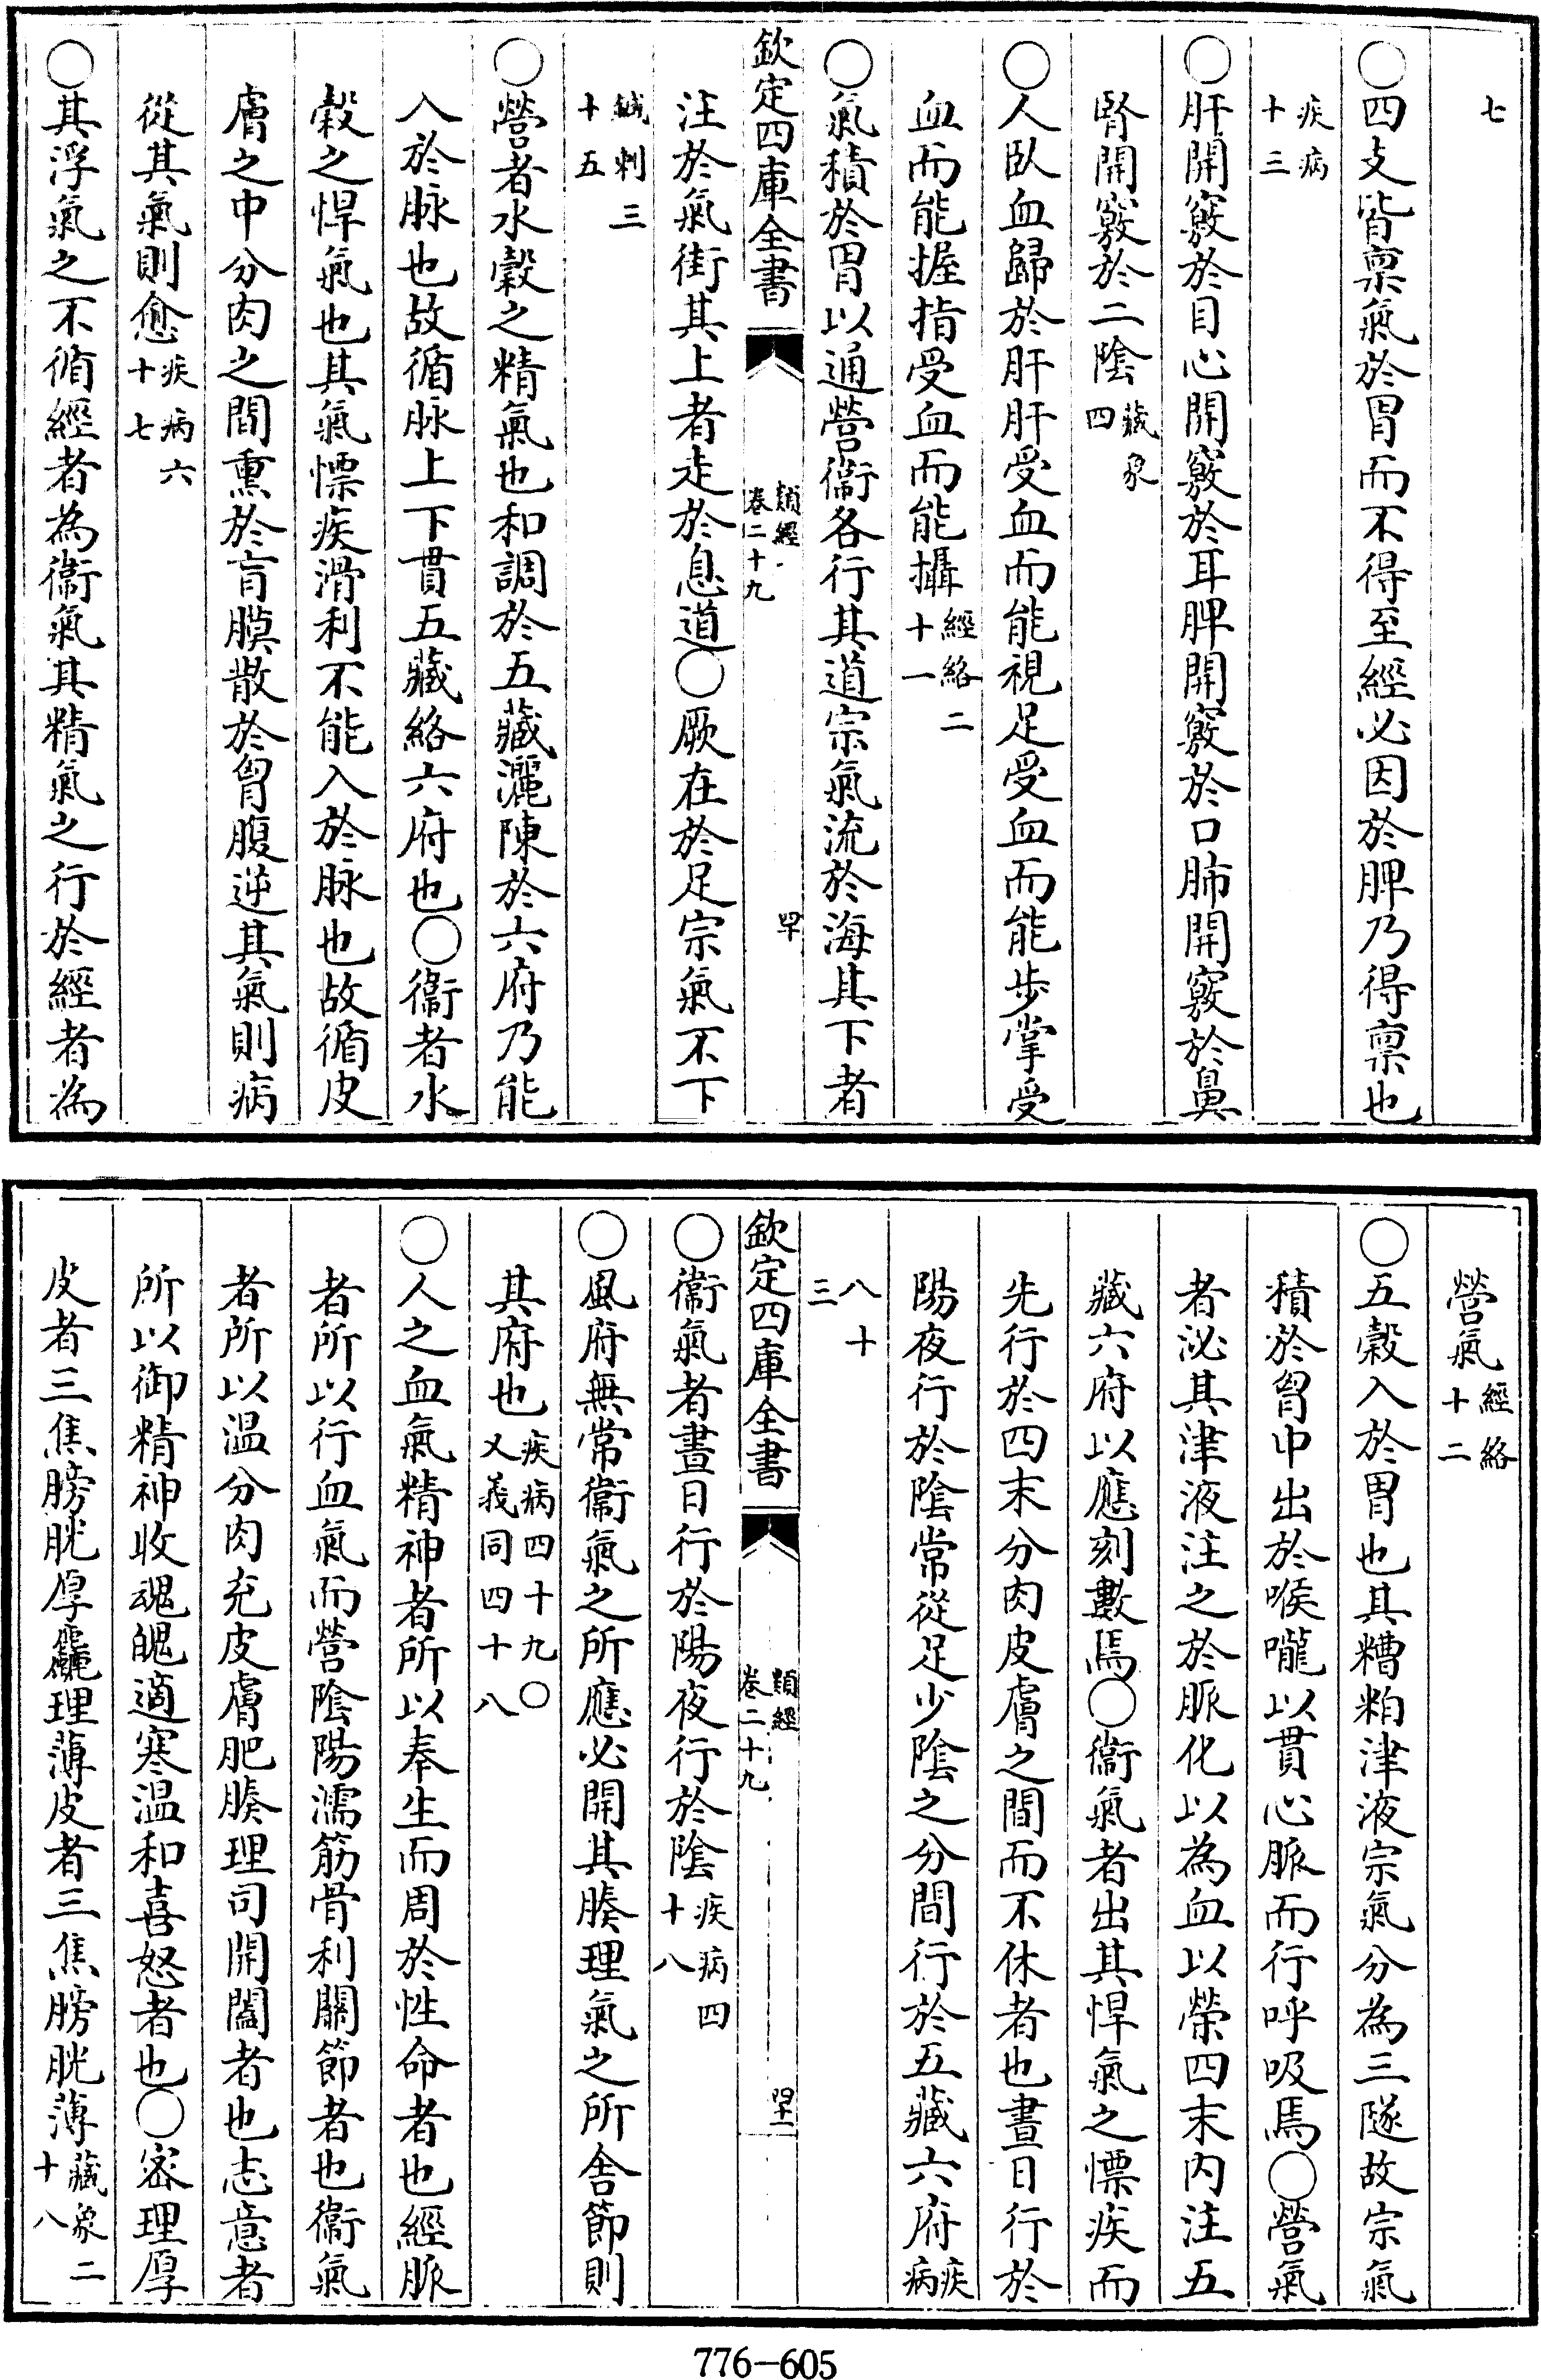 七
〇四支皆稟氣於胃而不得至經必因於脾乃得稟也
疾病
十三
〇肝開竅於目心開竅於耳脾開竅於口肺開竅於鼻
腎開竅於二陰藏象
四
〇人臥血歸於肝肝受血而能視足受血而能步掌受
血而能握指受血而能攝經絡二
十一
〇氣積於胃以通營衞各行其道宗氣流於海其下者
欽定四庫全書
類經
卷二十九
罕
注於氣街其上者走於息道〇厥在於足宗氣不下
鍼刺三
十五
〇營者水穀之精氣也和調於五藏灑陳於六府乃能
入於脉也故循脉上下貫五藏絡六府也〇衞者水
穀之悍氣也其氣慓疾滑利不能入於脉也故循皮
膚之中分肉之間熏於肓膜散於胷腹逆其氣則病
從其氣則愈疾病六
十七
〇其浮氣之不循經者為衞氣其精氣之行於經者為
營氣經絡
十二
〇五穀入於胃也其糟粕津液宗氣分為三隧故宗氣
積於胷中出於喉嚨以貫心脈而行呼吸焉〇營氣
者泌其津液注之於脈化以為血以榮四末内注五
藏六府以應刻數焉〇衞氣者出其悍氣之慓疾而
先行於四末分肉皮膚之間而不休者也晝日行於
陽夜行於陰常從足少陰之分間行於五藏六府疾
病
八十
三
欽定四庫全書
類經
卷二十九
〇衞氣者晝日行於陽夜行於陰疾病四
十八
〇風府無常衞氣之所應必開其腠理氣之所舍節則
其府也疾病四十九〇
又義同四十八
〇人之血氣精神者所以奉生而周於性命者也經脈
者所以行血氣而營陰陽濡筋骨利關節者也衞氣
者所以温分肉充皮膚肥腠理司開闔者也志意者
所以御精神收魂魄適寒温和喜怒者也〇密理厚
皮者三焦膀胱厚麤理薄皮者三焦膀胱薄藏象二
十八
776-605